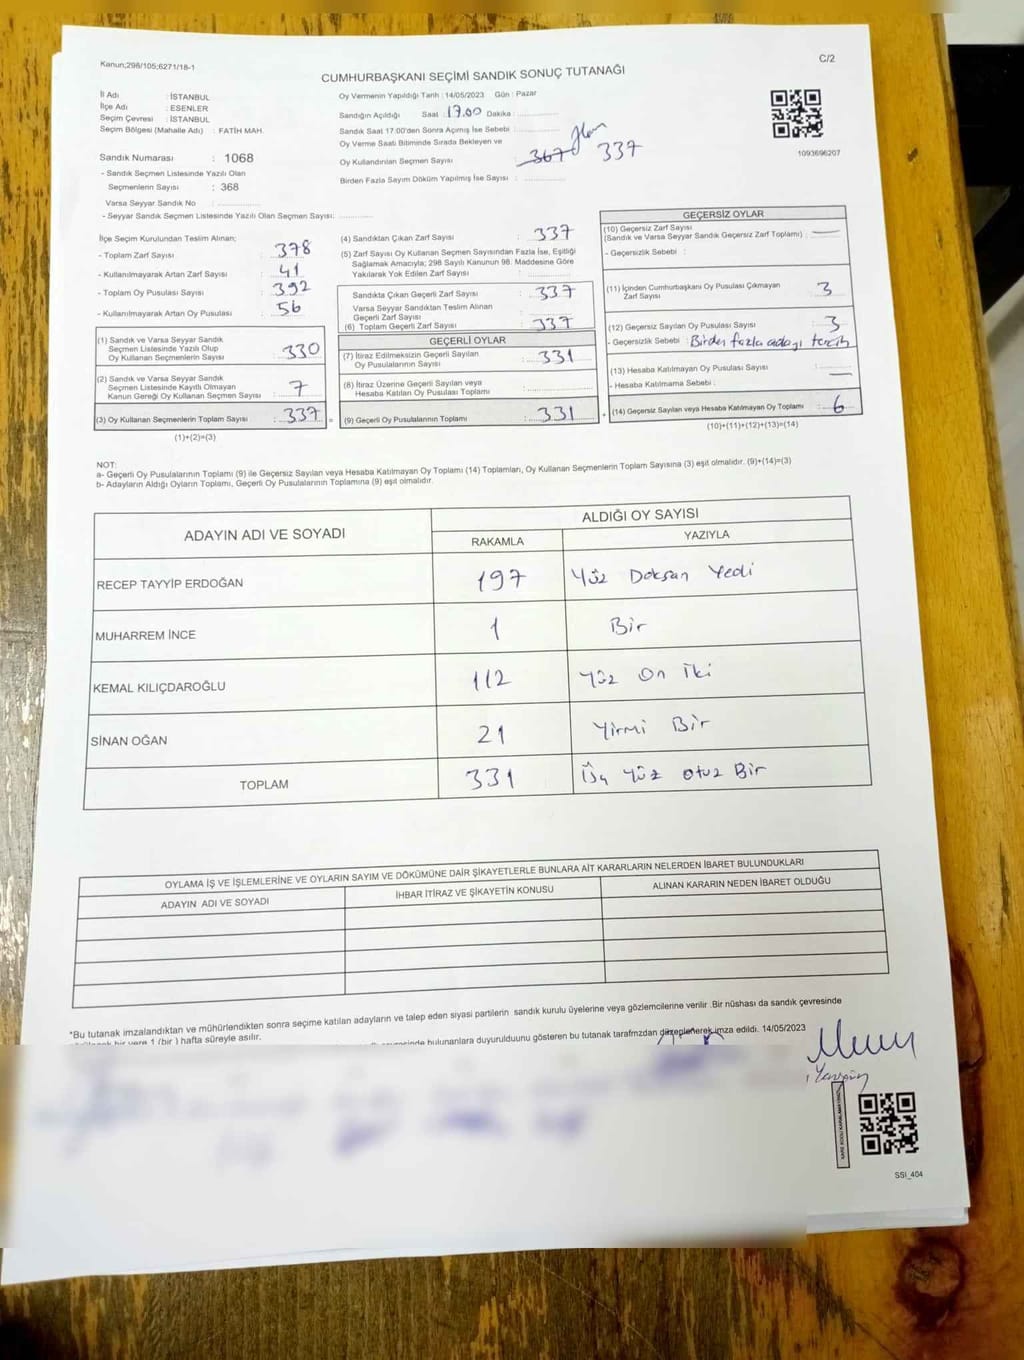 Kanun;298/105;6271/18-1
C/2
CUMHURBAŞKANI SEÇİMİ SANDIK SONUÇ TUTANAĞI
İl Adı : İSTANBUL
İlçe Adı : ESENLER
Seçim Çevresi : İSTANBUL
Seçim Bölgesi (Mahalle Adı) : FATİH MAH.
Sandık Numarası : 1068
- Sandık Seçmen Listesinde Yazılı Olan
Seçmenlerin Sayısı : 368
Varsa Seyyar Sandık No :
- Seyyar Sandık Seçmen Listesinde Yazılı Olan Seçmen Sayısı:
Oy Vermenin Yapıldığı Tarih : 14/05/2023 Gün : Pazar
Sandığın Açıldığı Saat : 17.00 Dakika :
Sandık Saat 17.00'den Sonra Açımış İse Sebebi :
Oy Verme Saati Bitiminde Sırada Bekleyen ve
Oy Kullandırılan Seçmen Sayısı : 367 337
Birden Fazla Sayım Döküm Yapılmış İse Sayısı :
1093696207
İlçe Seçim Kurulundan Teslim Alınan;
- Toplam Zarf Sayısı : 378
- Kullanılmayarak Artan Zarf Sayısı : 41
- Toplam Oy Pusulası Sayısı : 392
- Kullanılmayarak Artan Oy Pusulası : 56
(1) Sandık ve Varsa Seyyar Sandık
Seçmen Listesinde Yazılı Olup
Oy Kullanan Seçmenlerin Sayısı : 330
(2) Sandık ve Varsa Seyyar Sandık
Seçmen Listesinde Kayıtlı Olmayan
Kanun Gereği Oy Kullanan Seçmen Sayısı : 7
(3) Oy Kullanan Seçmenlerin Toplam Sayısı : 337 =
(1)+(2)=(3)
(4) Sandıktan Çıkan Zarf Sayısı : 337
(5) Zarf Sayısı Oy Kullanan Seçmen Sayısından Fazla İse, Eşitliği
Sağlamak Amacıyla; 298 Sayılı Kanunun 98. Maddesine Göre
Yakılarak Yok Edilen Zarf Sayısı :
Sandıkta Çıkan Geçerli Zarf Sayısı : 337
Varsa Seyyar Sandıktan Teslim Alınan
Geçerli Zarf Sayısı :
(6) Toplam Geçerli Zarf Sayısı : 337
GEÇERLİ OYLAR
(7) İtiraz Edilmeksizin Geçerli Sayılan
Oy Pusulalarının Sayısı : 331
(8) İtiraz Üzerine Geçerli Sayılan veya
Hesaba Katılan Oy Pusulası Toplamı :
(9) Geçerli Oy Pusulalarının Toplamı : 331 +
GEÇERSİZ OYLAR
(10) Geçersiz Zarf Sayısı
(Sandık ve Varsa Seyyar Sandık Geçersiz Zarf Toplamı) :
- Geçersizlik Sebebi :
(11) İçinden Cumhurbaşkanı Oy Pusulası Çıkmayan
Zarf Sayısı : 3
(12) Geçersiz Sayılan Oy Pusulası Sayısı : 3
- Geçersizlik Sebebi : Birden fazla adayı tercih
(13) Hesaba Katılmayan Oy Pusulası Sayısı :
- Hesaba Katılmama Sebebi :
(14) Geçersiz Sayılan veya Hesaba Katılmayan Oy Toplamı : 6
(10)+(11)+(12)+(13)=(14)
NOT:
a- Geçerli Oy Pusulalarının Toplamı (9) ile Geçersiz Sayılan veya Hesaba Katılmayan Oy Toplamı (14) Toplamları, Oy Kullanan Seçmenlerin Toplam Sayısına (3) eşit olmalıdır. (9)+(14)=(3)
b- Adayların Aldığı Oyların Toplamı, Geçerli Oy Pusulalarının Toplamına (9) eşit olmalıdır.
ADAYIN ADI VE SOYADI ALDIĞI OY SAYISI
RAKAMLA YAZIYLA
RECEP TAYYİP ERDOĞAN 197 Yüz Doksan Yedi
MUHARREM İNCE 1 Bir
KEMAL KILIÇDAROĞLU 112 Yüz On İki
SİNAN OĞAN 21 Yirmi Bir
TOPLAM 331 Üç Yüz Otuz Bir
OYLAMA İŞ VE İŞLEMLERİNE VE OYLARIN SAYIM VE DÖKÜMÜNE DAİR ŞİKAYETLERLE BUNLARA AİT KARARLARIN NELERDEN İBARET BULUNDUKLARI
ADAYIN ADI VE SOYADI İHBAR İTİRAZ VE ŞİKAYETİN KONUSU ALINAN KARARIN NEDEN İBARET OLDUĞU
*Bu tutanak imzalandıktan ve mühürlendikten sonra seçime katılan adayların ve talep eden siyasi partilerin sandık kurulu üyelerine veya gözlemcilerine verilir .Bir nüshası da sandık çevresinde
bir yere 1 (bir ) hafta süreyle asılır.
bulunanlara duyurulduunu gösteren bu tutanak tarafmzdan düzenlenerek imza edildi. 14/05/2023
SSI_404